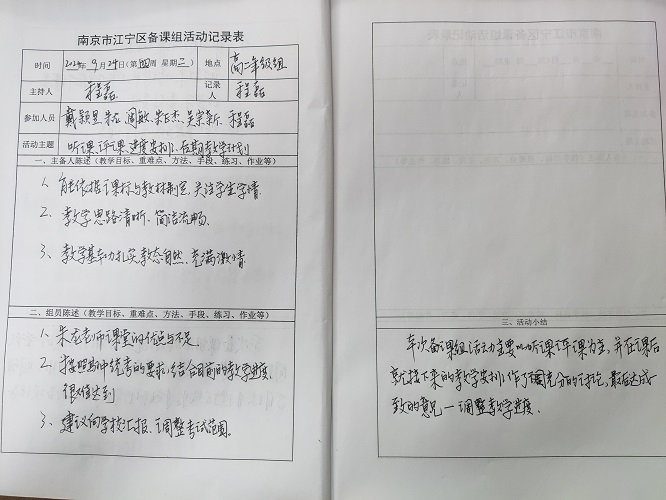 南京市江宁区备课组活动记录表
时间 2024年9月24日(第四周 星期二) 地点 高二年级组
主持人 程磊 记录人 程磊
参加人员 戴颖昱、朱龙、周敏、朱正杰、吴宗新、程磊
活动主题 听课、评课、进度安排、后期教学计划
一、主备人陈述(教学目标、重难点、方法、手段、练习、作业等)
1、能依据课标与教材制定,关注学生学情
2、教学思路清晰、简洁流畅.
3、教学基本功扎实,教态自然,充满激情
二、组员陈述(教学目标、重难点、方法、手段、练习、作业等)
1、朱龙老师课堂的优点与不足.
2、按照期中统考的要求,结合目前的教学进度,
很难达到
3、建议向学校汇报、调整考试范围。
三、活动小结
本次备课组活动主要以听课评课为主,并在课后
就接下来的教学安排作了充分的讨论,最后达成
一致的意见—调整教学进度.